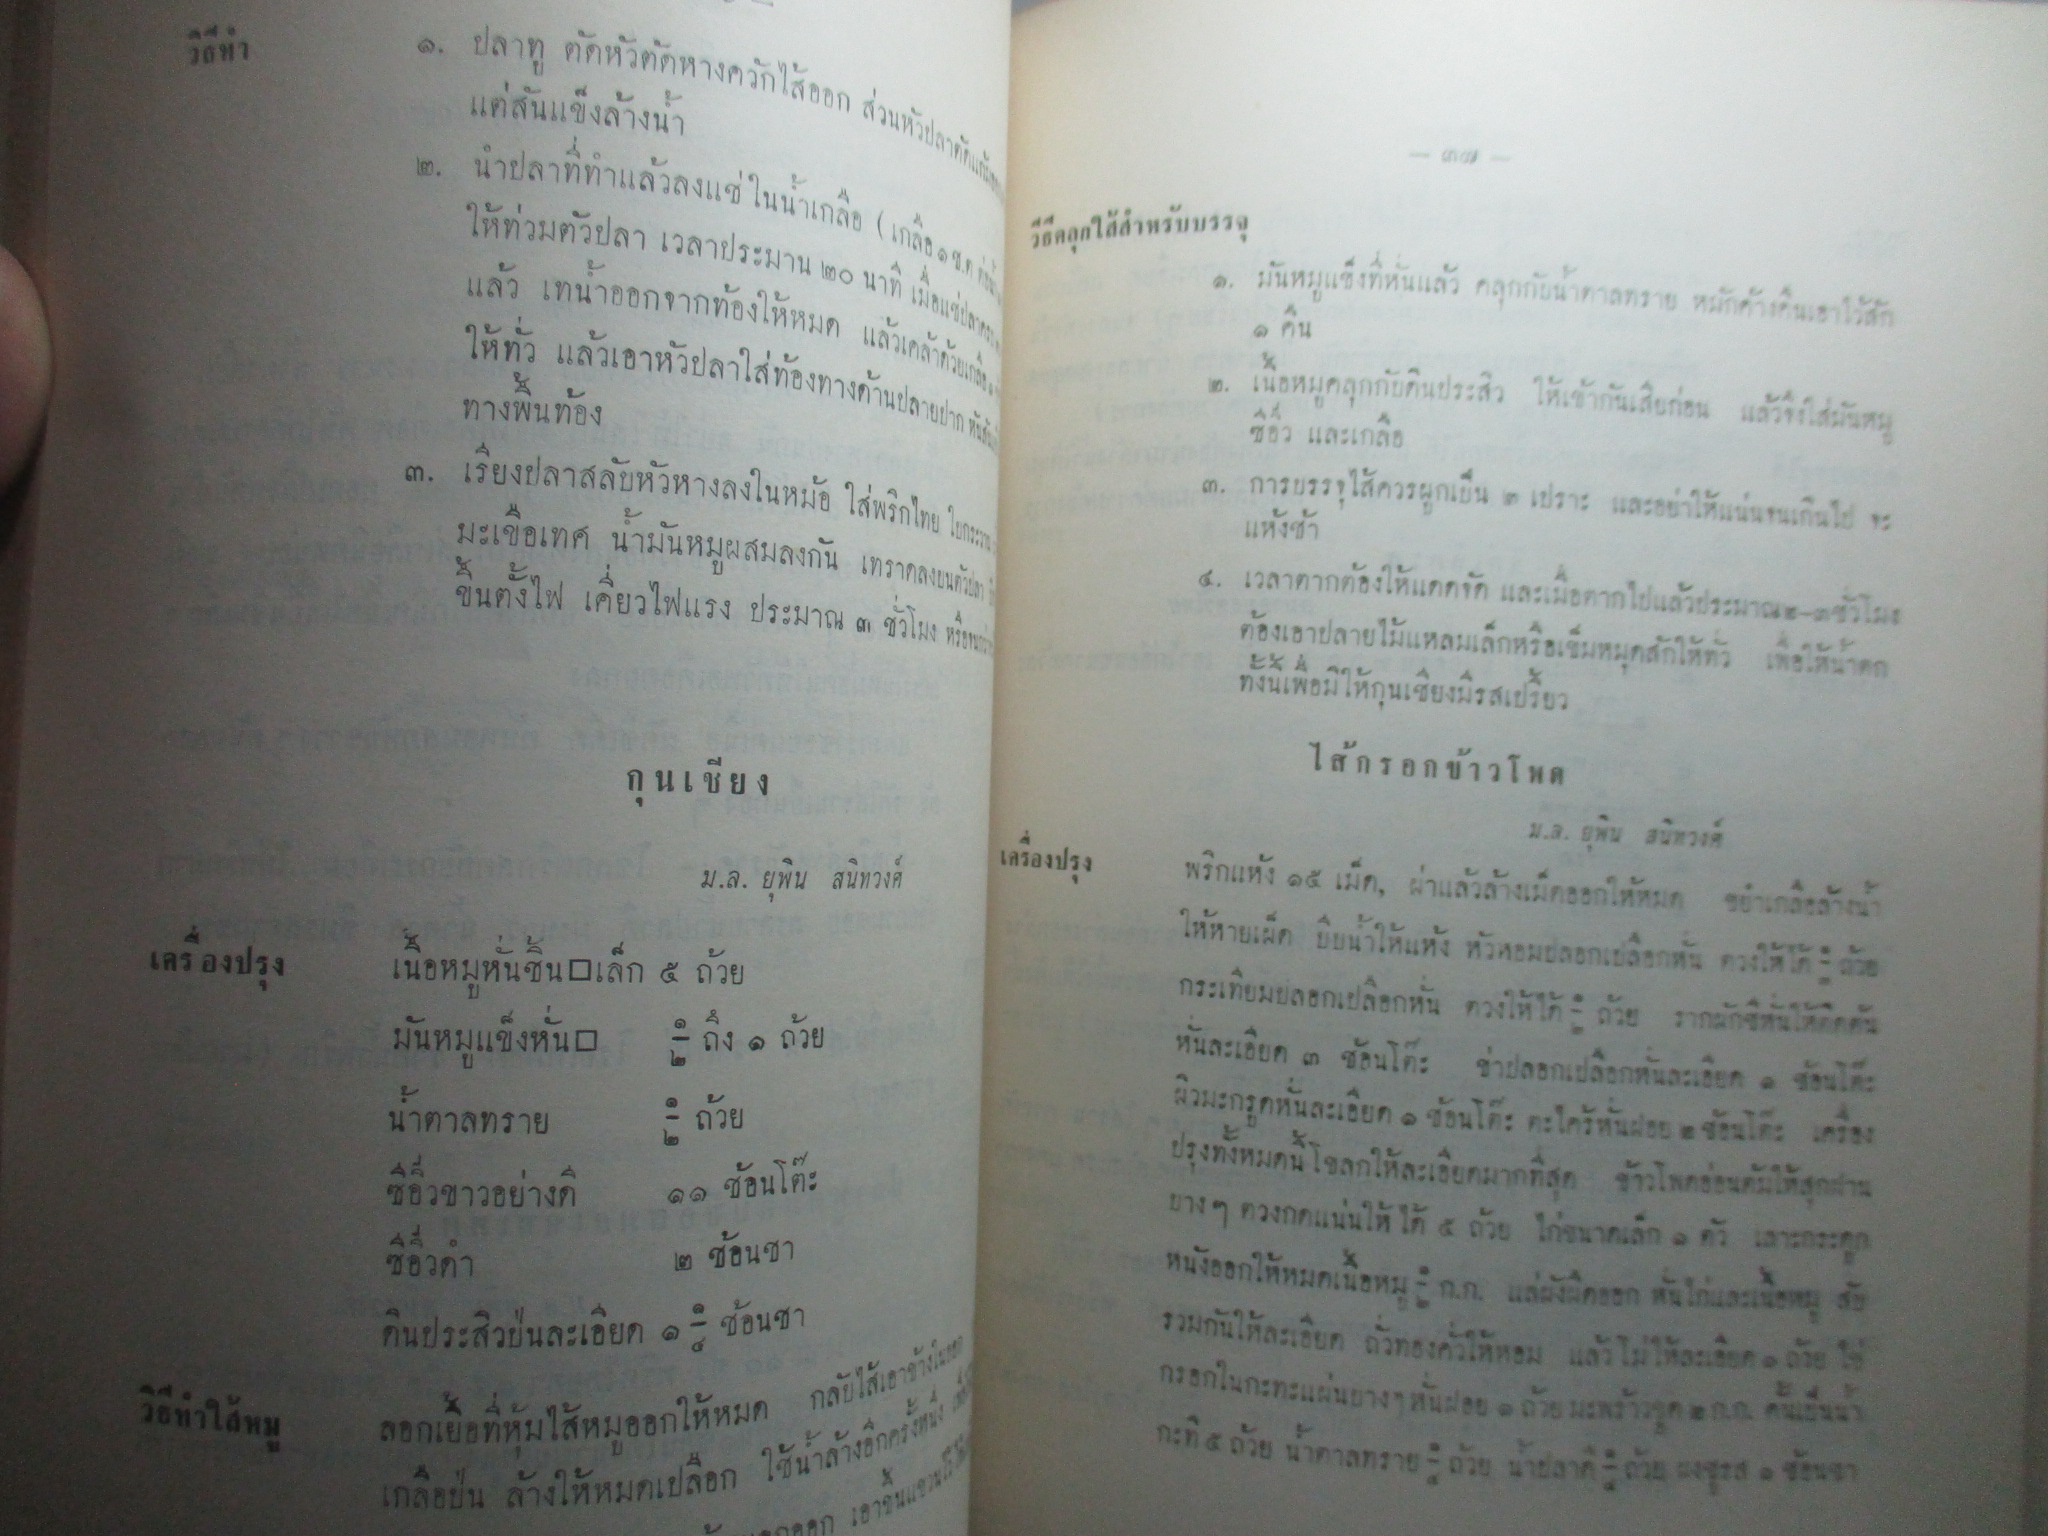 วิธีทำ
๑. ปลาทู ตัดหัวตัดหางควักไส้ออก ส่วนหัวปลาตัด
แต่สันแข็งล้างน้ำ
๒. นำปลาที่ทำแล้วลงแช่ในน้ำเกลือ (เกลือ ๑ ช.ต.
ให้ท่วมตัวปลา เวลาประมาน ๒๐ นาที เมื่อแช่ปลา
แล้ว เทน้ำออกจากท้องให้หมด แล้วเคล้าด้วยเกลือ
ให้ทั่ว แล้วเอาหัวปลาใส่ท้องทางด้านปลายปาก หันสัน
ทางพื้นท้อง
๓. เรียงปลาสลับหัวหางลงในหม้อ ใส่พริกไทย ใบกระวาน
มะเขือเทศ น้ำมันหมูผสมลงกัน เทราดลงบนตัวปลา
ขึ้นตั้งไฟ เคี่ยวไฟแรง ประมาณ ๓ ชั่วโมง
กุนเชียง
ม.ล. ยุพิน สนิทวงศ์
เครื่องปรุง
เนื้อหมูหั่นชิ้น□เล็ก ๕ ถ้วย
มันหมูแข็งหั่น□ ๑/๒ ถึง ๑ ถ้วย
น้ำตาลทราย ๑/๒ ถ้วย
ซีอิ๊วขาวอย่างดี ๑๑ ช้อนโต๊ะ
ซีอิ๊วดำ ๒ ช้อนชา
ดินประสิวป่นละเอียด ๑ ๑/๔ ช้อนชา
วิธีทำไส้หมู
ลอกเยื่อที่หุ้มไส้หมูออกให้หมด กลับไส้เอาข้างในออก
เกลือป่น ล้างให้หมดเปลือก ใช้น้ำล้างอีกครั้งหนึ่ง
ออก เอาขึ้นแขวน
— ๓๗ —
วิธีคลุกไส้สำหรับบรรจุ
๑. มันหมูแข็งที่หั่นแล้ว คลุกกับน้ำตาลทราย หมักค้างคืนเอาไว้สัก
๑ คืน
๒. เนื้อหมูคลุกกับดินประสิว ให้เข้ากันเสียก่อน แล้วจึงใส่มันหมู
ซีอิ๊ว และเกลือ
๓. การบรรจุไส้ควรผูกเป็น ๓ เปราะ และอย่าให้แน่นจนเกินไป จะ
แห้งช้า
๔. เวลาตากต้องให้แดดจัด และเมื่อตากไปแล้วประมาณ๒–๓ชั่วโมง
ต้องเอาปลายไม้แหลมเล็กหรือเข็มหมุดสักให้ทั่ว เพื่อให้น้ำตก
ทั้งนี้เพื่อมิให้กุนเชียงมีรสเปรี้ยว
ไส้กรอกข้าวโพด
ม.ล. ยุพิน สนิทวงศ์
เครื่องปรุง
พริกแห้ง ๑๕ เม็ด, ผ่าแล้วล้างเม็ดออกให้หมด ขยำเกลือล้างน้ำ
ให้หายเผ็ด บีบน้ำให้แห้ง หัวหอมปลอกเปลือกหั่น ตวงให้ได้ ๑/๒ ถ้วย
กระเทียมปลอกเปลือกหั่น ตวงให้ได้ ๑/๒ ถ้วย รากผักชีหั่นให้ติดต้น
หั่นละเอียด ๓ ช้อนโต๊ะ ข่าปลอกเปลือกหั่นละเอียด ๑ ช้อนโต๊ะ
ผิวมะกรูดหั่นละเอียด ๑ ช้อนโต๊ะ ตะไคร้หั่นฝอย ๒ ช้อนโต๊ะ เครื่อง
ปรุงทั้งหมดนี้โขลกให้ละเอียดมากที่สุด ข้าวโพดอ่อนต้มให้สุกฝาน
บางๆ ตวงกดแน่นให้ได้ ๕ ถ้วย ไก่ขนาดเล็ก ๑ ตัว เลาะกระดูก
หนังออกให้หมดเนื้อหมู ๑/๒ ก.ก. แล่ผังผืดออก หั่นไก่และเนื้อหมู สับ
รวมกันให้ละเอียด ถั่วทองคั่วให้หอม แล้วโม่ให้ละเอียด ๑ ถ้วย ไข่
กรอกในกะทะแผ่นบางๆหั่นฝอย ๑ ถ้วย มะพร้าวขูด ๒ ก.ก. คั้นเป็นน้ำ
กะทิ ๕ ถ้วย น้ำตาลทราย ๑/๒ ถ้วย น้ำปลาดี ๑/๒ ถ้วย ผงชูรส ๑ ช้อนชา